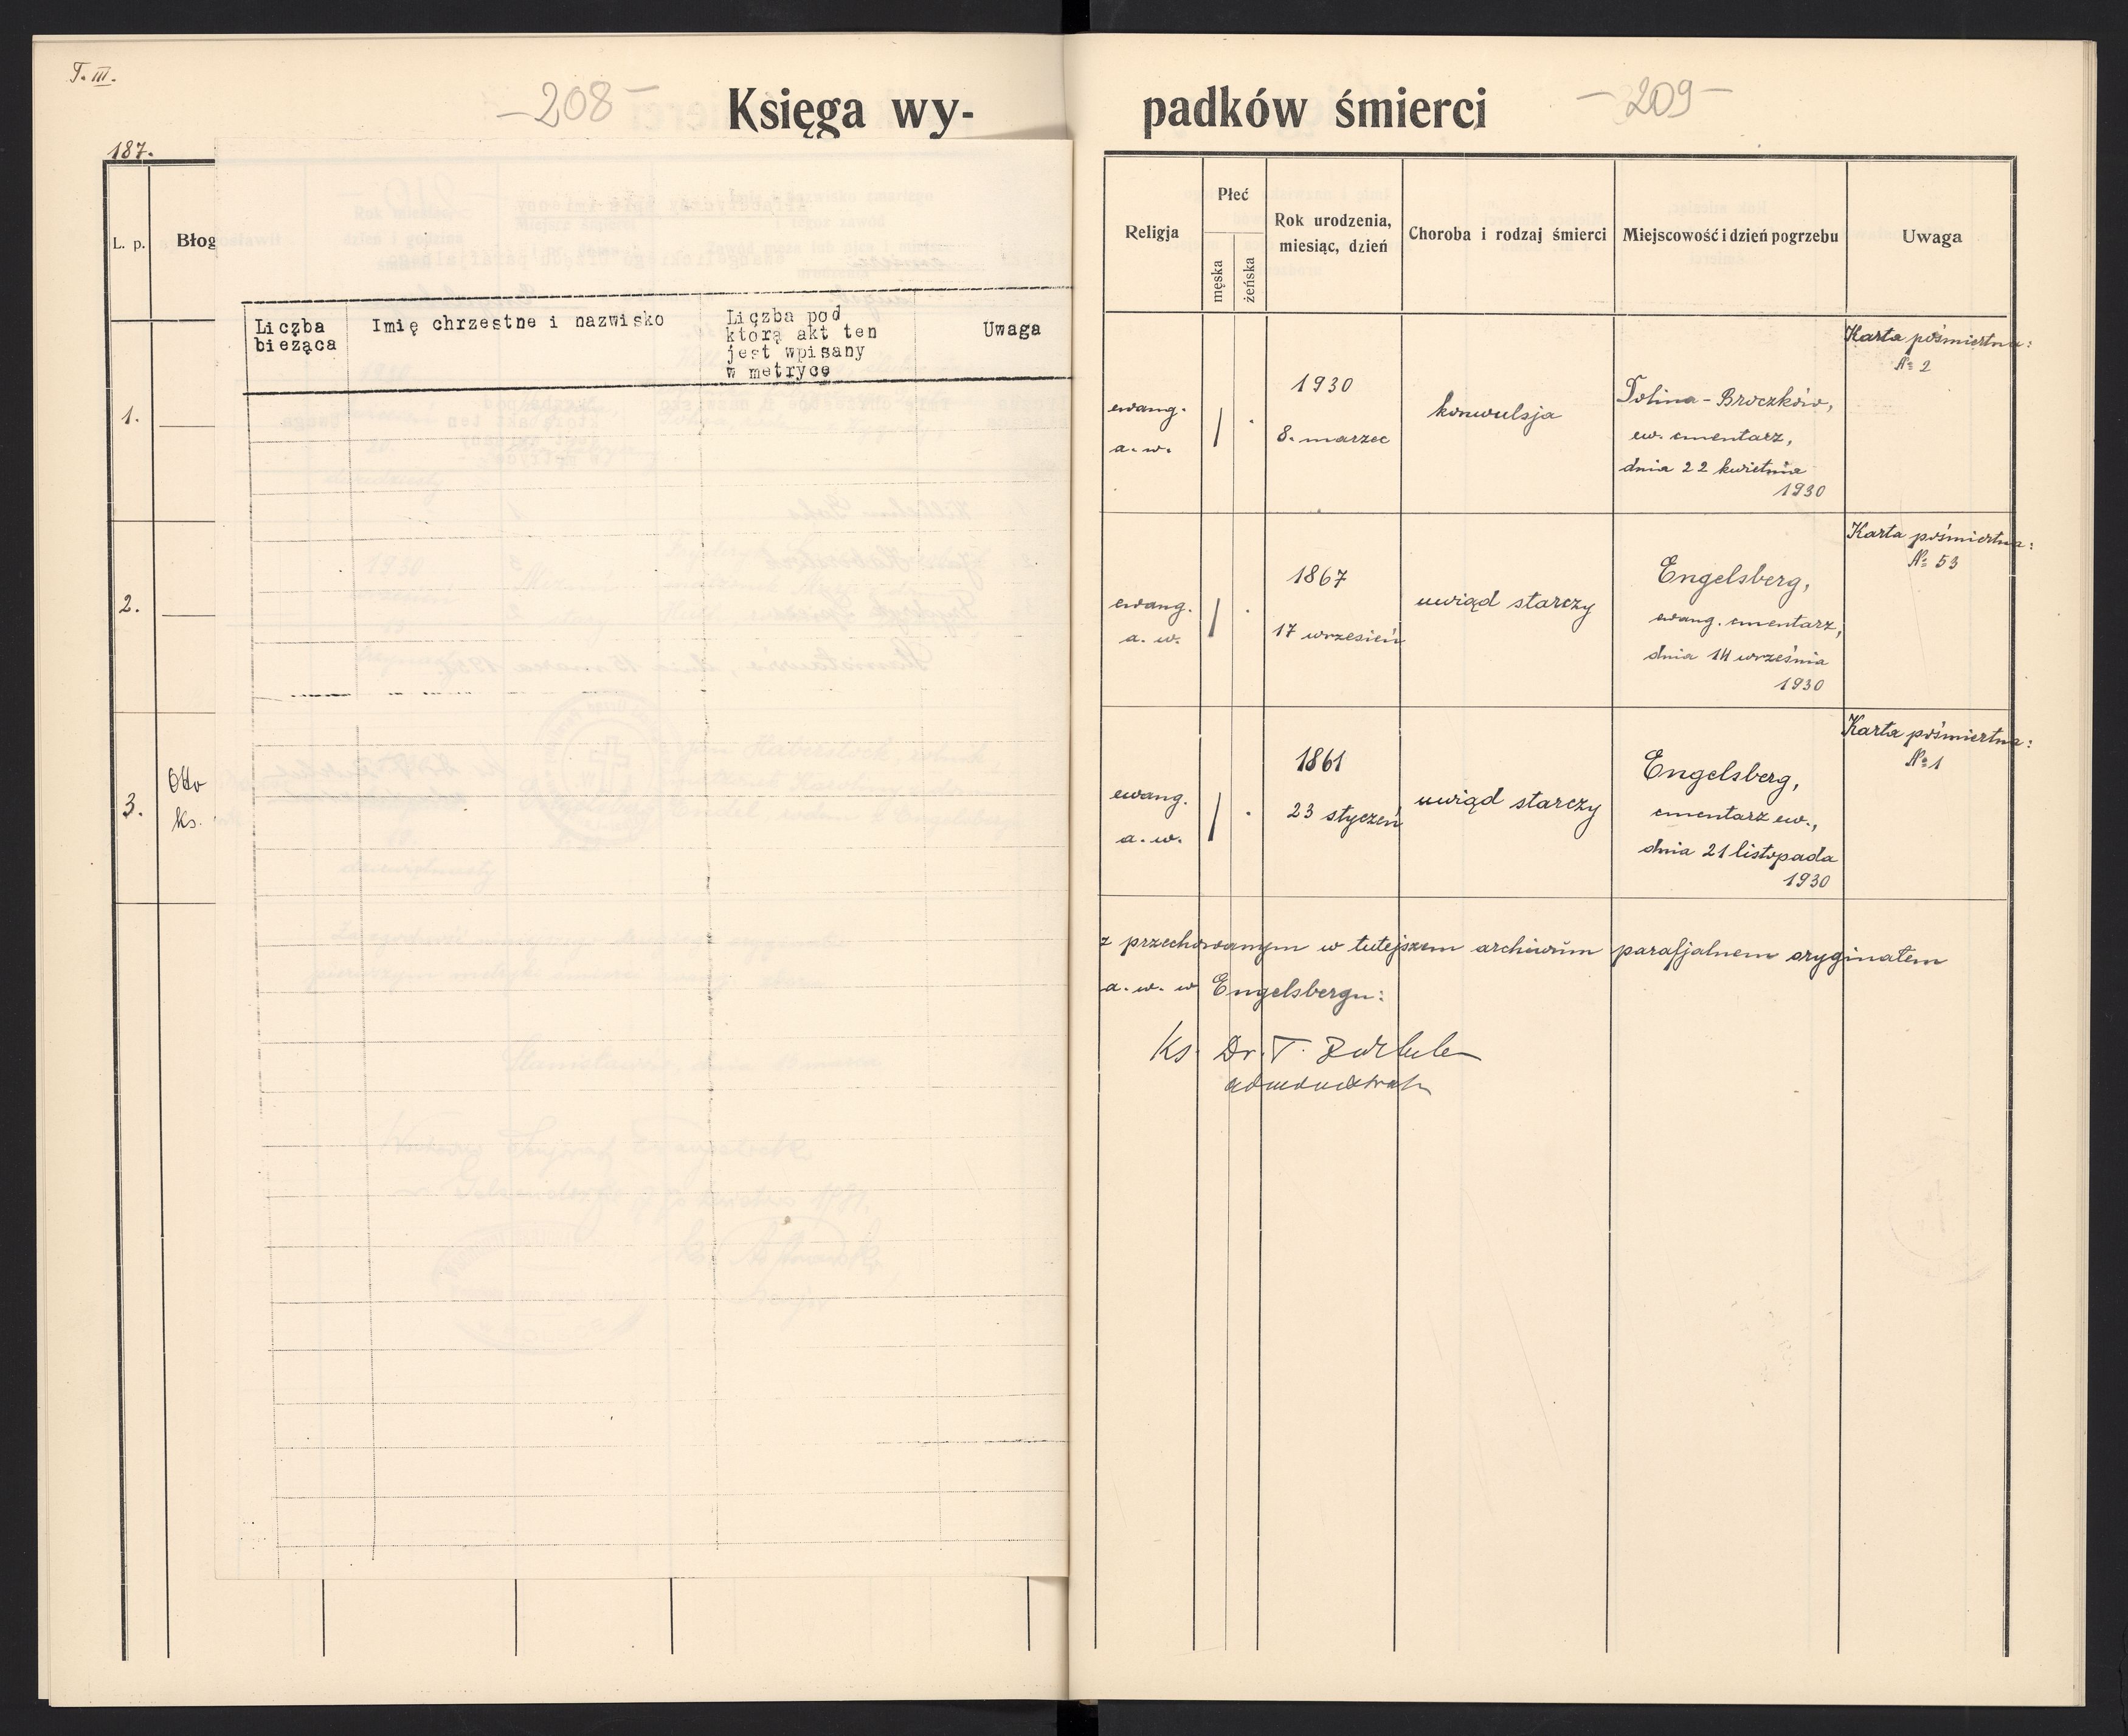 T. III.
– 208 –
Księga wy-
187.
L. p.
Błog
Liczba
bieząca
Imię chrzestne i nazwisko
Liczba pod
którą akt ten
jest wpisany
w metryce
Uwaga
1.
2.
3.
Otto
ks.
padków śmierci
– 209 –
Religja
Płeć
męska
żeńska
Rok urodzenia,
miesiąc, dzień
Choroba i rodzaj śmierci
Miejscowość i dzień pogrzebu
Uwaga
ewang.
a. w.
1930
8. marzec
konwulsja
Dolina – Broczków,
ew. cmentarz,
dnia 22 kwietnia
1930
Karta pośmiertna:
№ 2
ewang.
a. w.
1867
17 wrzesień
uwiąd starczy
Engelsberg,
ewang. cmentarz,
dnia 14 września
1930
Karta pośmiertna:
№ 53
ewang.
a. w.
1861
23 styczeń
uwiąd starczy
Engelsberg,
cmentarz ew.,
dnia 21 listopada
1930
Karta pośmiertna:
№ 1
z przechowanym w tutejszem archiwum parafjalnem oryginałem
a. w. w Engelsbergu:
Ks. Dr. T.